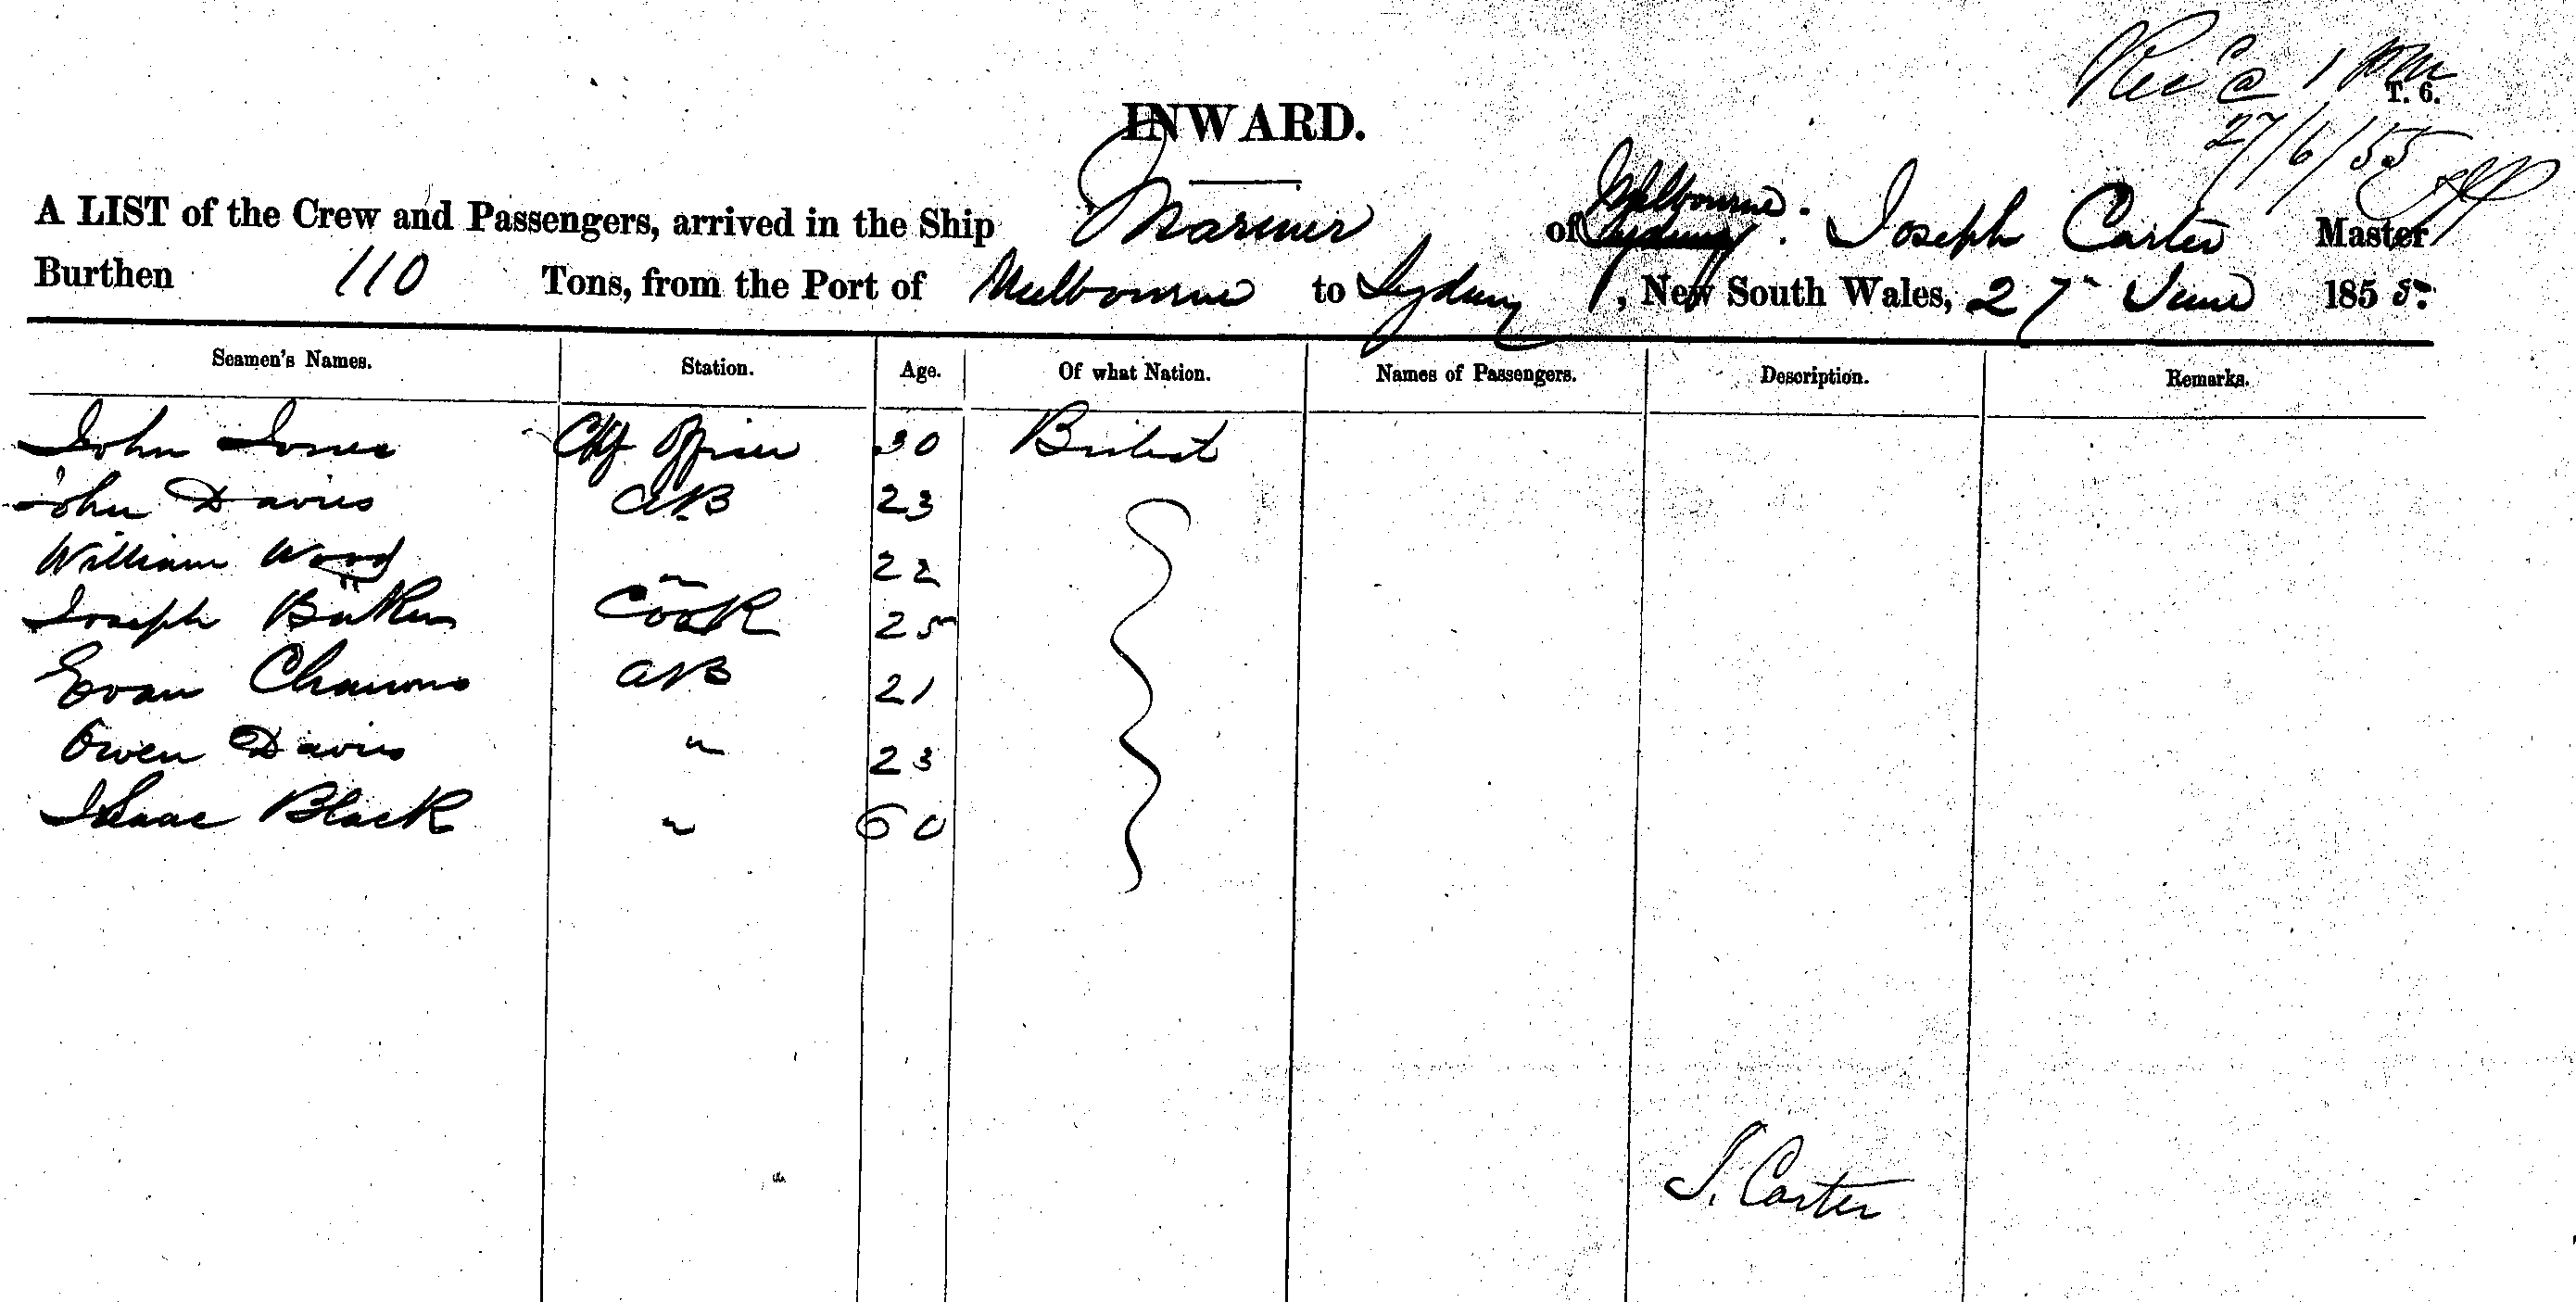 Rec'd @ 1 PM
T. 6.
27/6/55
INWARD.
A LIST of the Crew and Passengers, arrived in the Ship Mariner of Melbourne. Joseph Carter Master
Burthen 110 Tons, from the Port of Melbourne to Sydney, New South Wales, 27" June 1855.
Seamen's Names. Station. Age. Of what Nation. Names of Passengers. Description. Remarks.
John Jones Chf Officer 30 British
John Davies AB 23
William Wood " 22
Joseph Cook 25
Evan AB 21
Owen Davies " 23
Isaac Black " 60
J. Carter